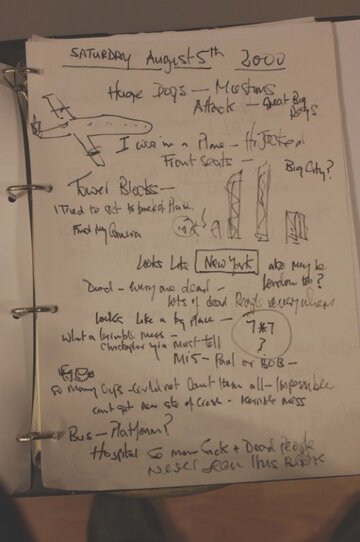 SATURDAY August 5th 2000
Huge Dogs — Muslims
Attack — Great Big
Dogs
I was in a Plane — Hijacked
Front Seats —
Big City?
Tower Blocks —
I Tried to get to back of Plane
Find My Camera
Looks Like New York also may be
London to?
Dead — everyone dead —
lots of dead People everywhere
Looks Like a big Place — 7*7
?
What a terrible mess —
Christopher must tell
Mi5 — Paul or BOB —
So Many Cups — Could not Count them all — Impossible
cant get near site of Crash — terrible Mess
Bus — Platform?
Hospital So many Sick + Dead People
Never seen this Before